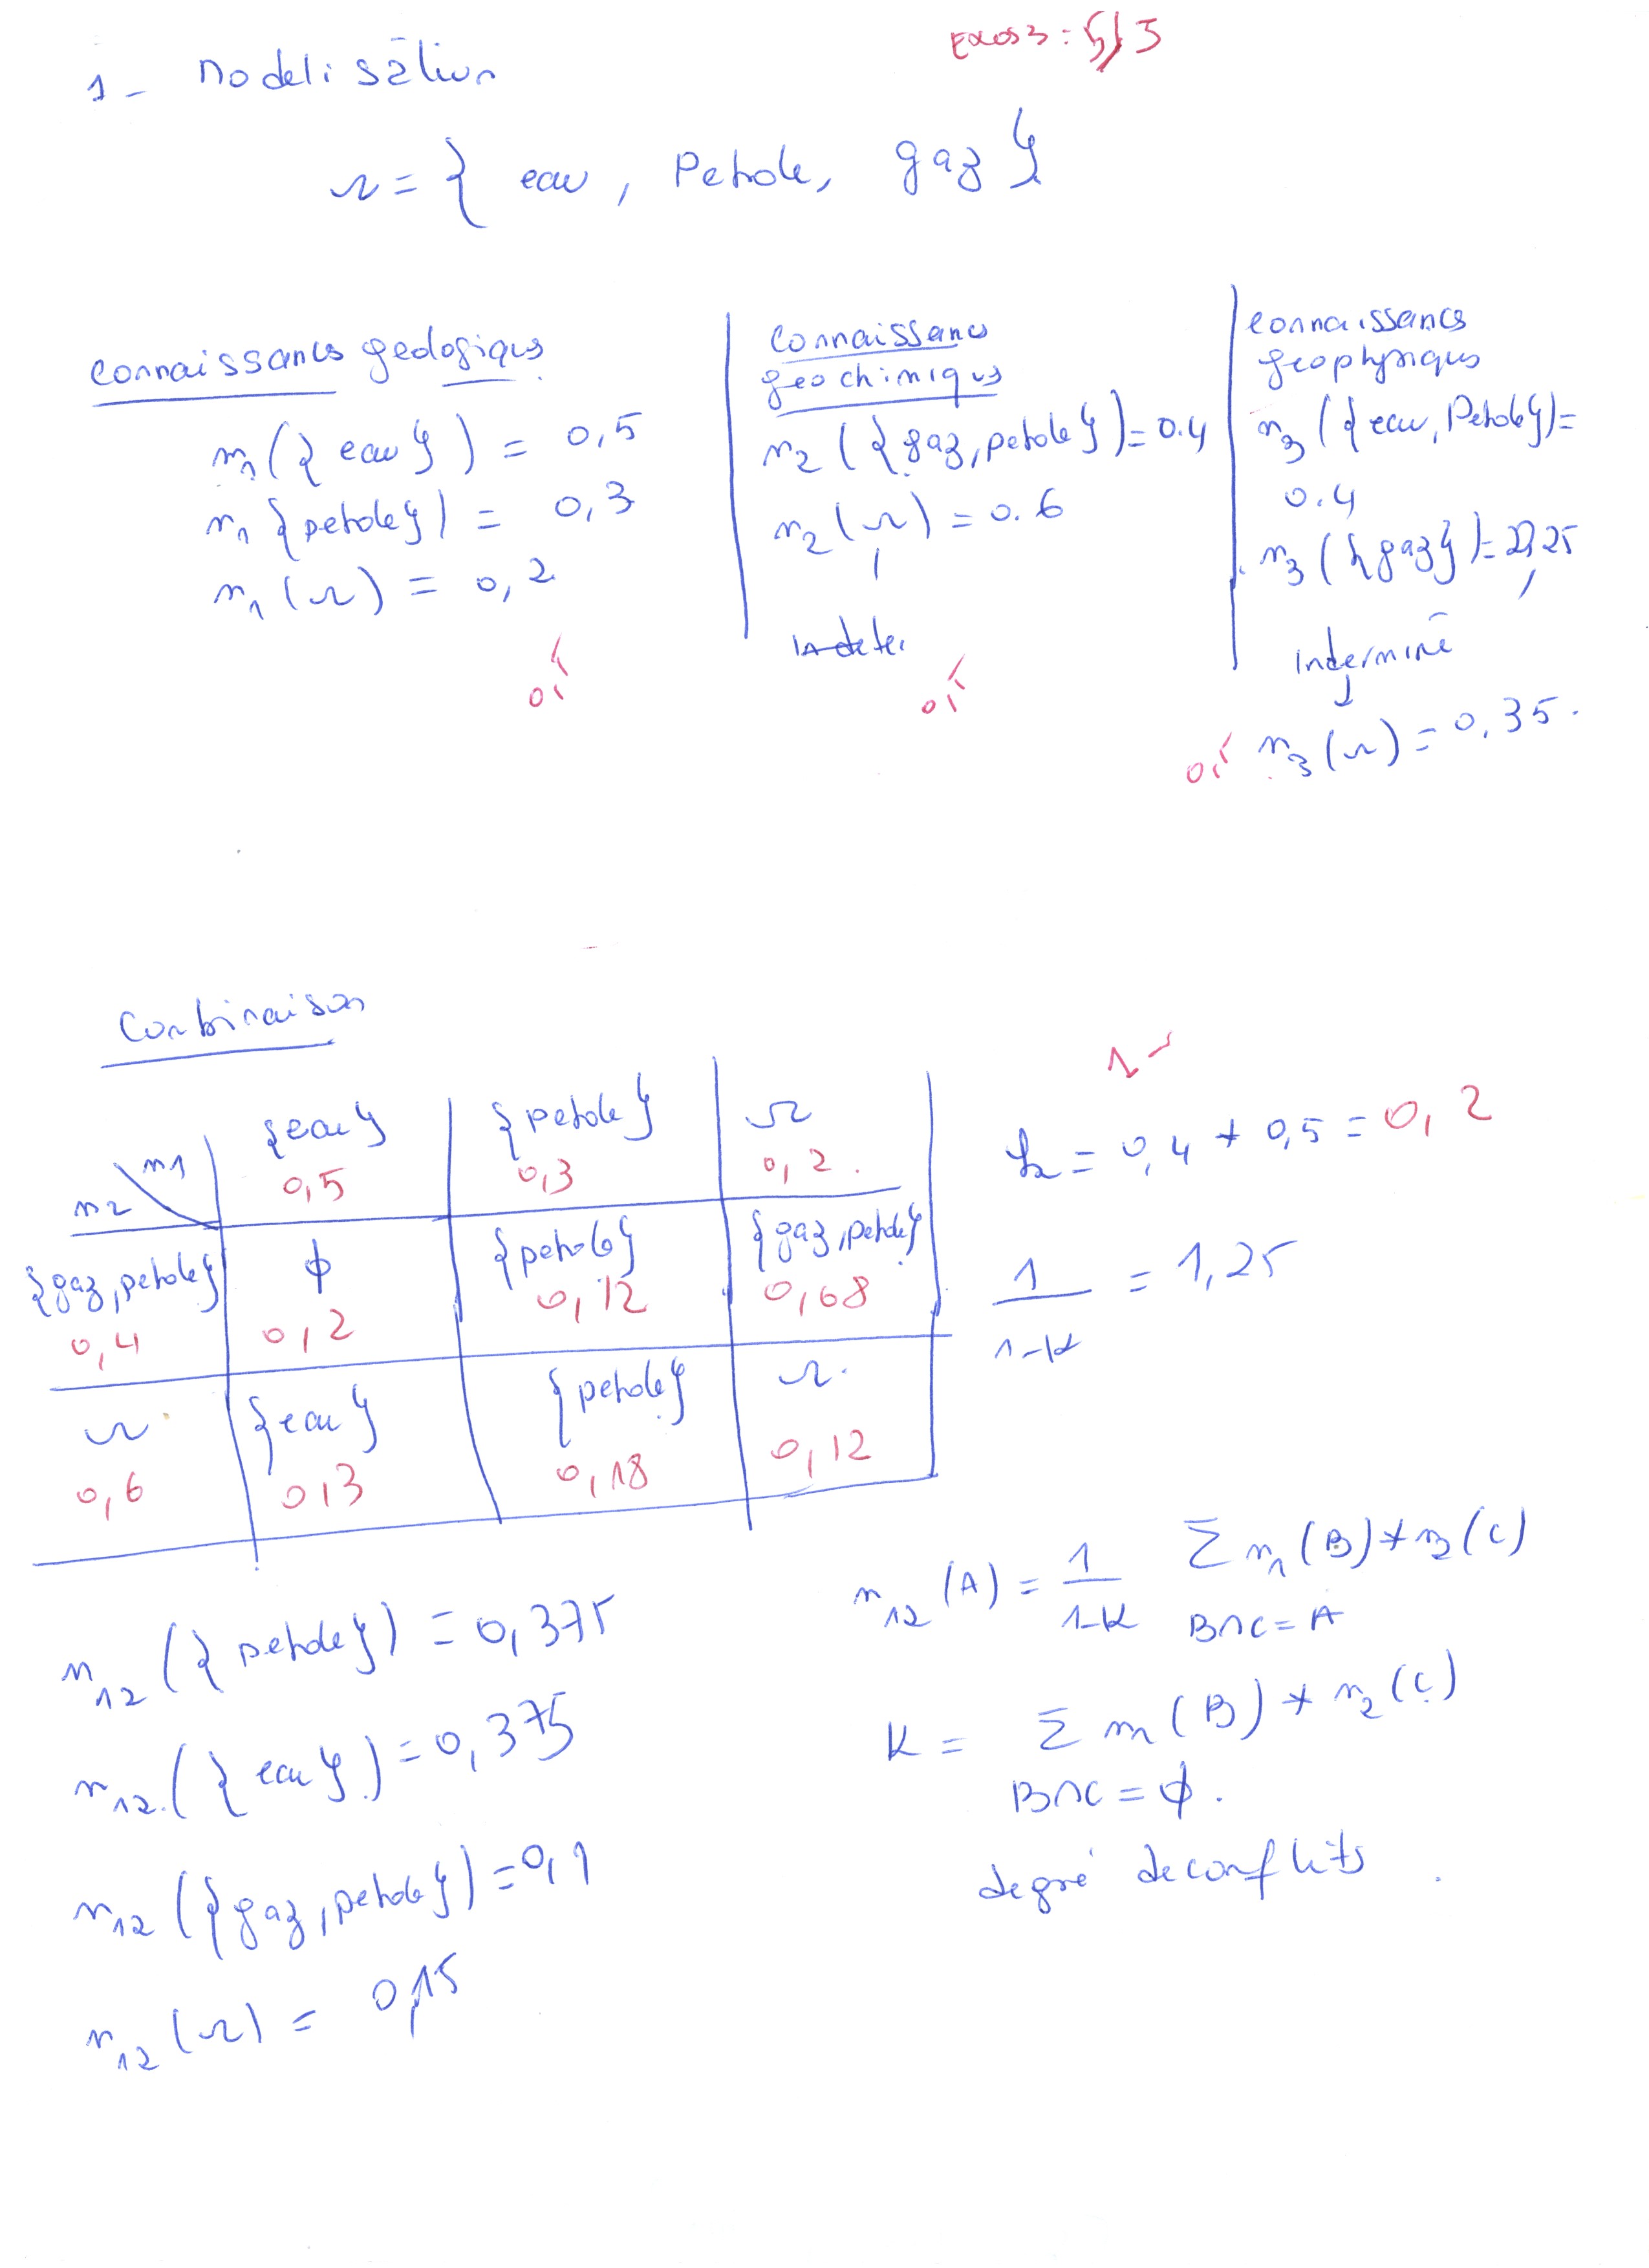 Exos3 : 5/5
1 - Modelisation
Ω = { eau, Petrole, gaz }
connaissances geologiques
m1({eau}) = 0,5
m1{petrole}) = 0,3
m1(Ω) = 0,2
0,5
Connaissances
geochimiques
m2({gaz, petrole}) = 0.4
m2(Ω) = 0.6
0,5
connaissances
geophysiques
m3({eau, Petrole}) =
0.4
m3({gaz}) = 0,25
indermine
0,5 m3(Ω) = 0,35.
Combinaison
m1 {eau} {petrole} Ω
m2 0,5 0,3 0,2.
{gaz, petrole} ϕ {petrole} {gaz, petrole}
0,4 0,2 0,12 0,08
Ω {eau} {petrole} Ω.
0,6 0,3 0,18 0,12
1
k = 0,4 * 0,5 = 0,2
1 / 1-K = 1,25
m12({petrole}) = 0,375
m12({eau}) = 0,375
m12({gaz, petrole}) = 0,1
m12(Ω) = 0,15
m12(A) = 1 / 1-K Σ m1(B) * m2(C)
B∩C = A
K = Σ m1(B) * m2(C)
B∩C = ϕ.
degré de conflits.